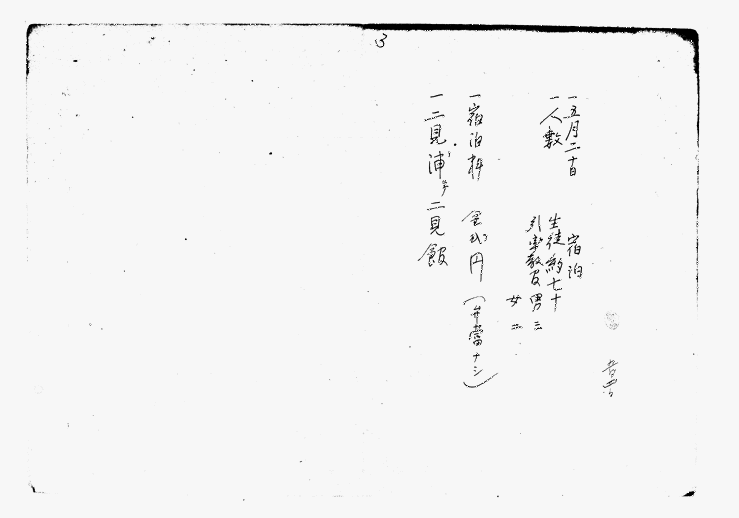 3
一五月二十日 宿泊
一人數 生徒約七十
引率教員男三
女二
一宿泊料 金弐円(弁當ナシ)
一二見浦 二見館